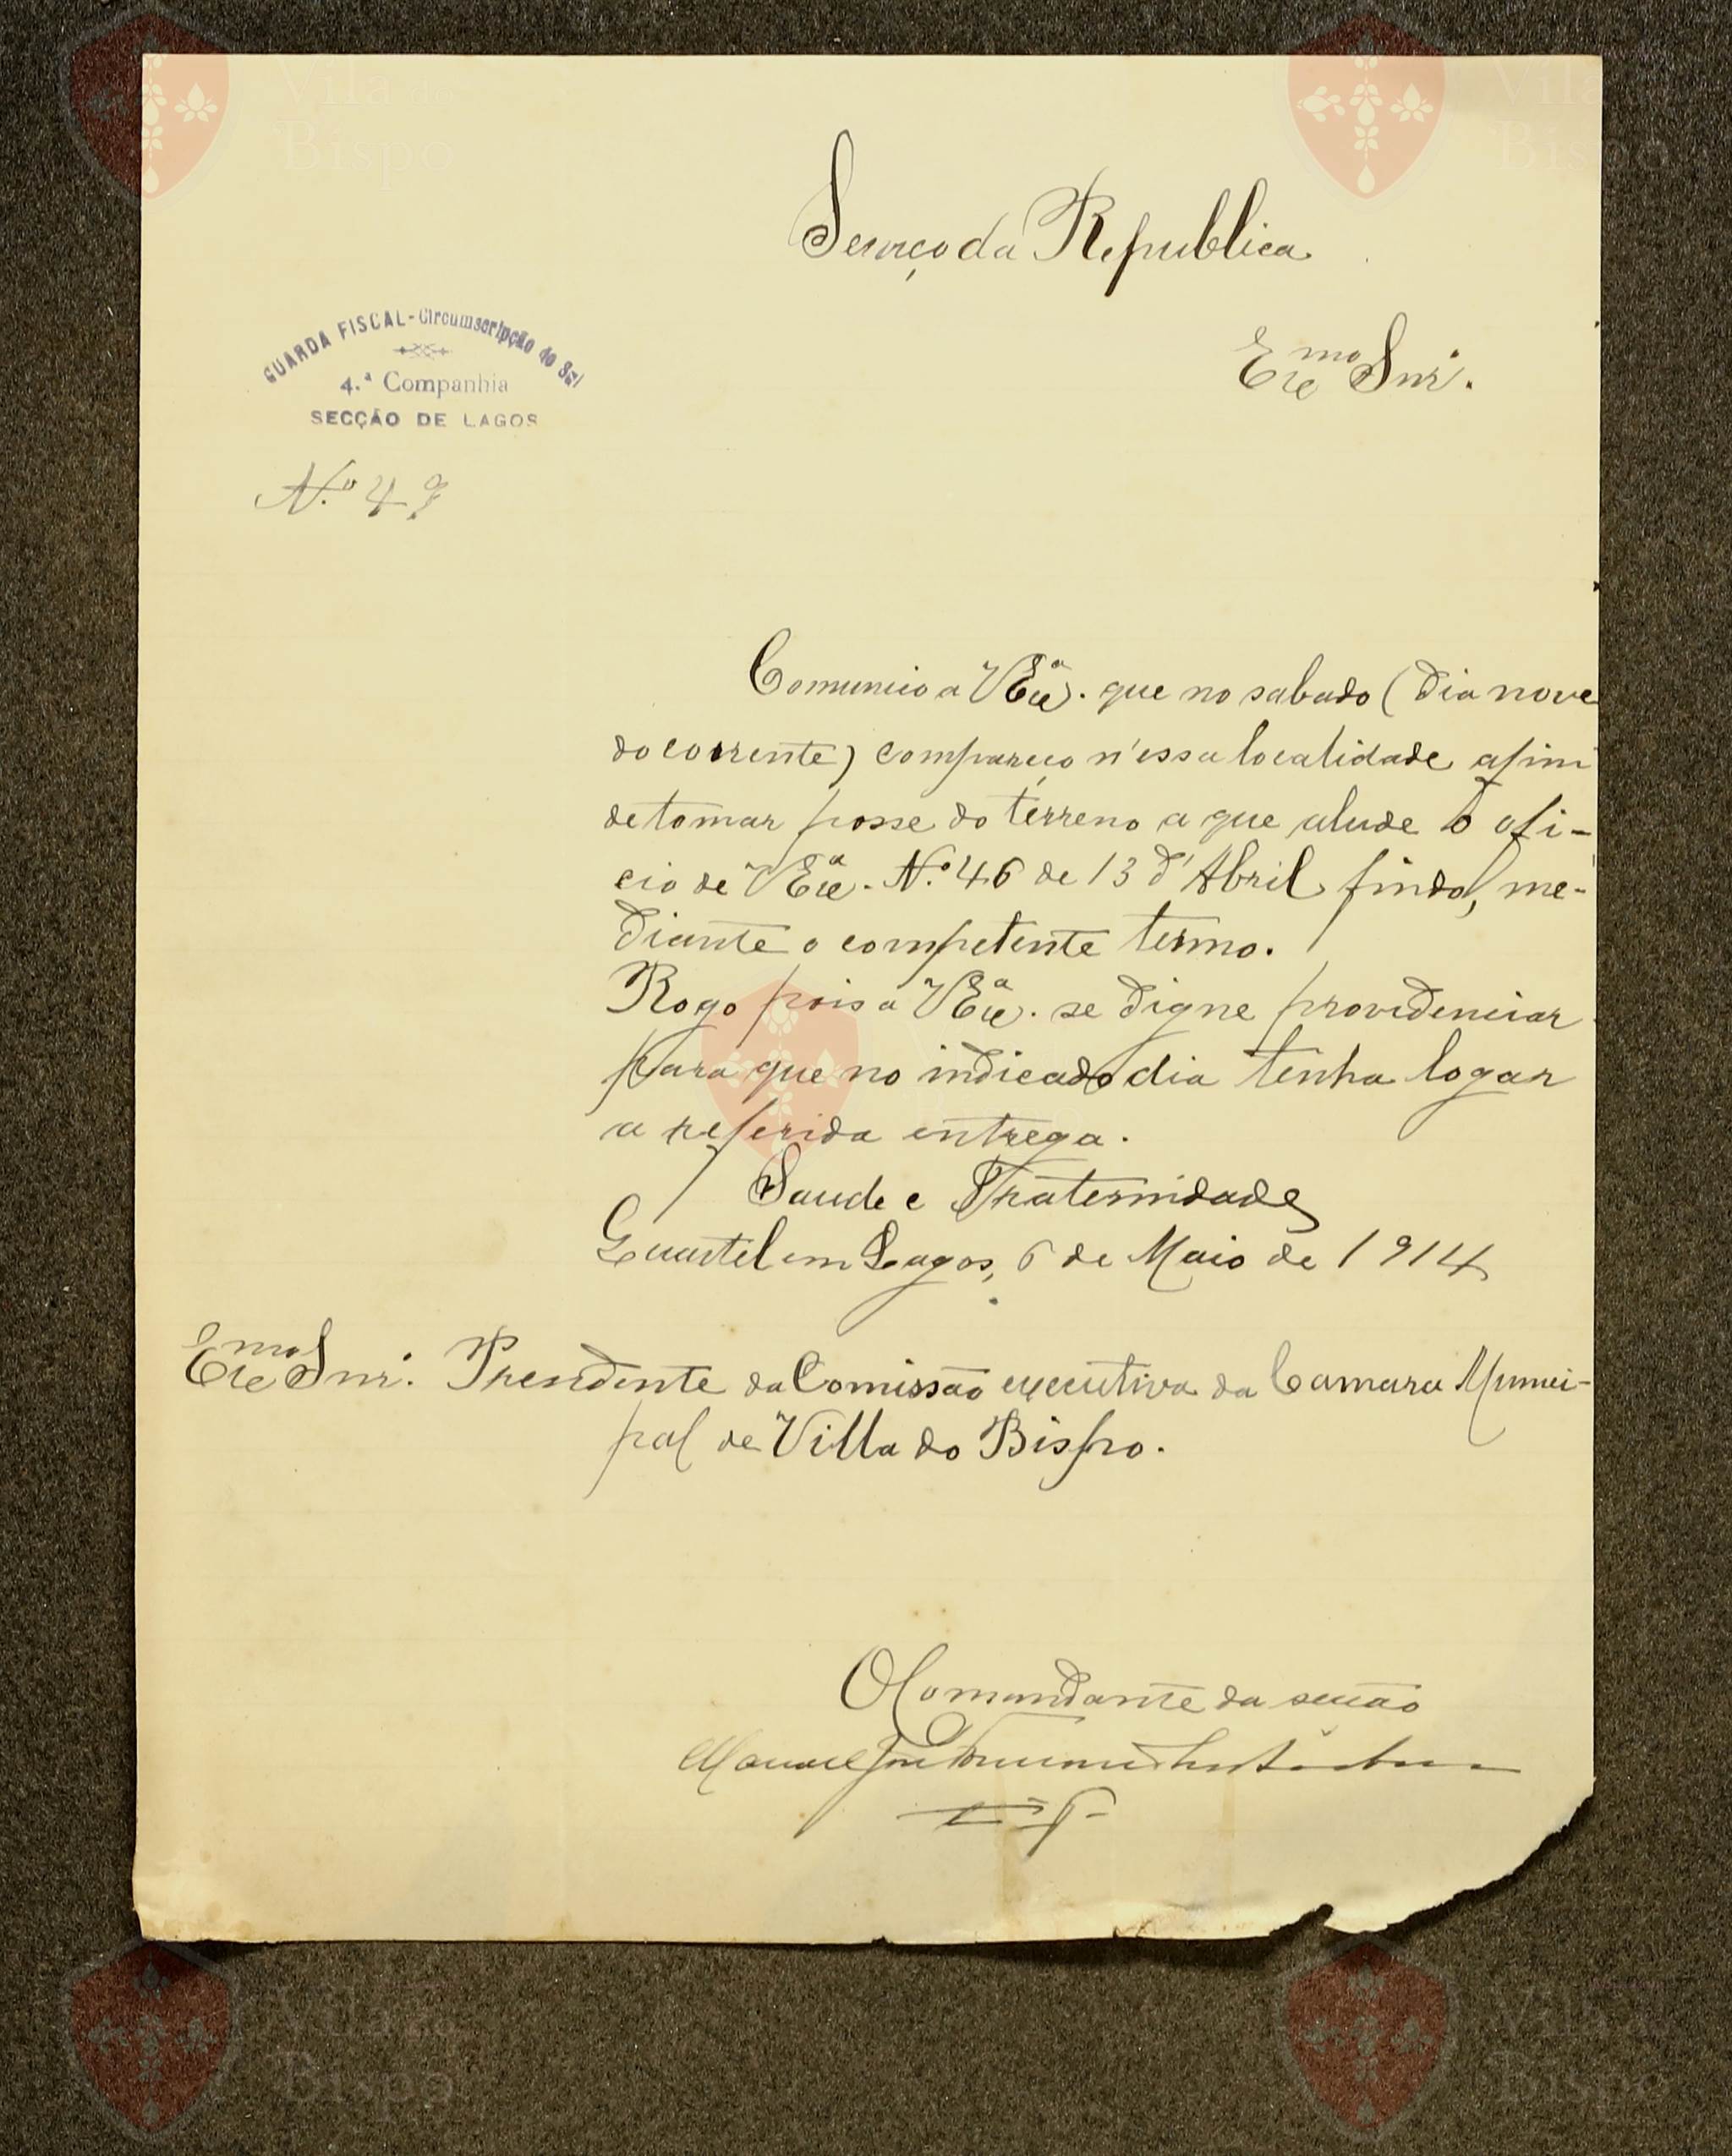 Serviço da Republica
GUARDA FISCAL-Circumscripção do Sul
4.ª Companhia
SECÇÃO DE LAGOS
Exc.mo Snr.
N.º 47
Comunico a V Exc.ª que no sabado (dia nove
do corrente) compareço n'essa localidade afim
de tomar posse do terreno a que alude o ofi-
cio de V Exc.ª N.º 46 de 13 d'Abril findo, me-
diante o competente termo.
Rogo pois a V Exc.ª se digne providenciar
para que no indicado dia tenha logar
a referida entrega.
Saude e Fraternidade
Quartel em Lagos, 6 de Maio de 1914
Exc.mo Snr. Presidente da Comissão executiva da Camara Munici-
pal de Villa do Bispo.
O Comandante da secção
Manuel José
Vila do Bispo